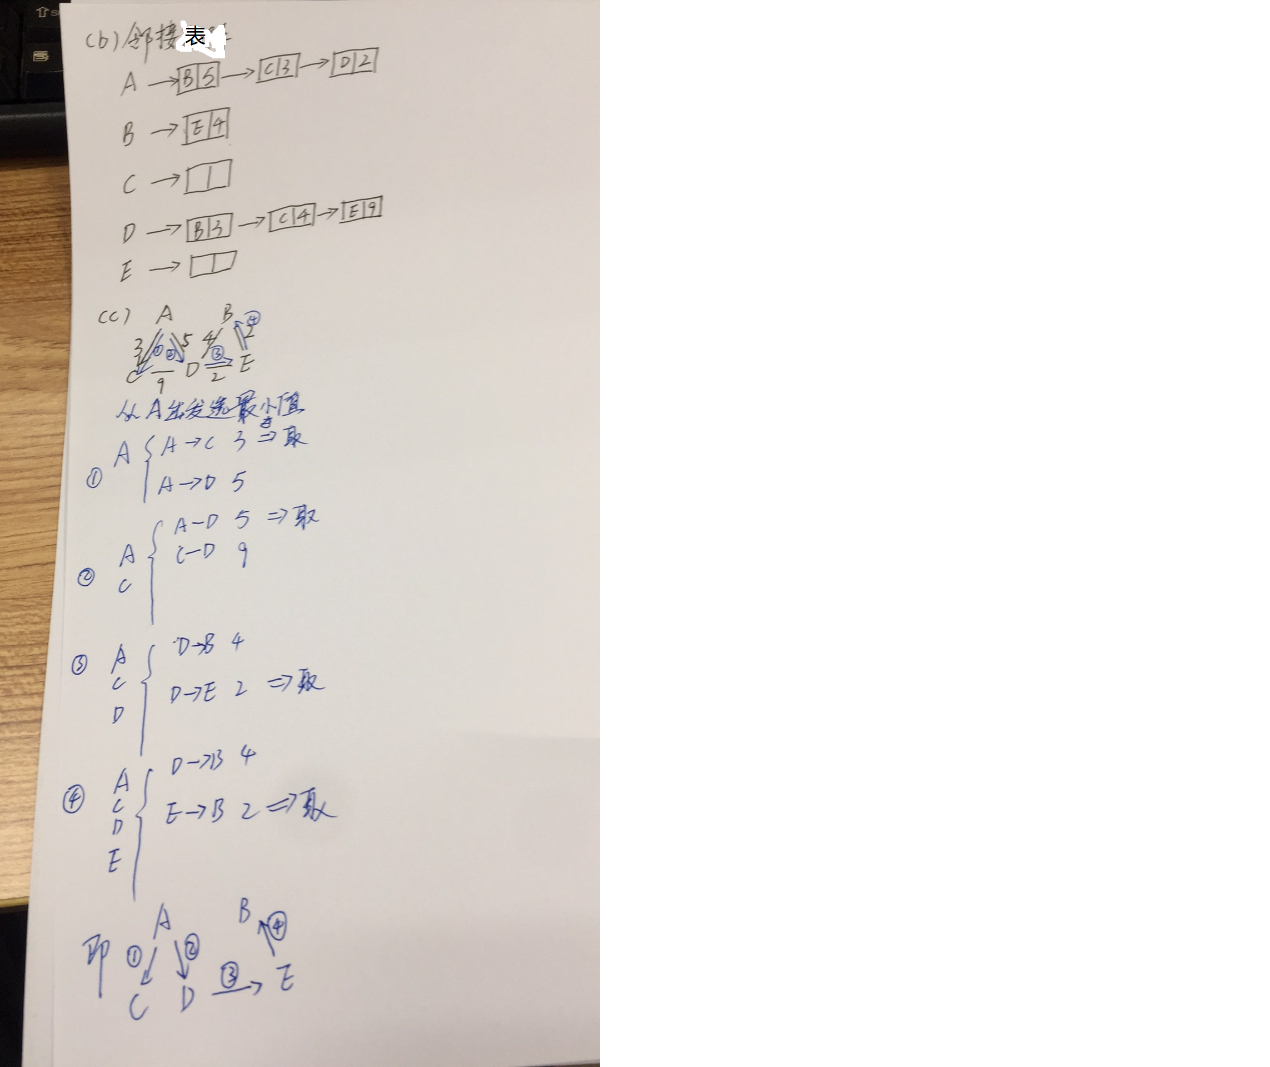 (b) 邻接表
A → B 5 → C 3 → D 2
B → E 4
C →
D → B 3 → C 4 → E 9
E →
(c) A B
3 ① ② 5 4 ③ ④ 2
C 9 D 2 E
从A出发选最小值
① A { A→C 3 ⇒取
A→D 5
② A C { A—D 5 ⇒取
C—D 9
③ A C D { D→B 4
D→E 2 ⇒取
④ A C D E { D→B 4
E→B 2 ⇒取
即 A B
① ② ③ ④
C D E